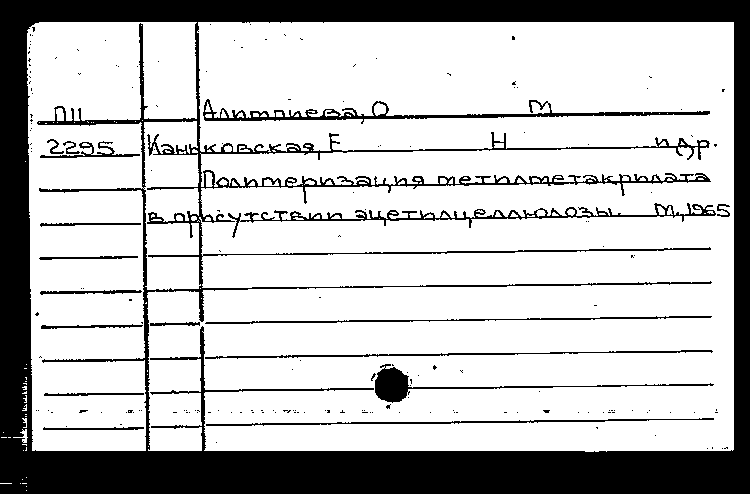 П11 Алимпиева, О М
2295 Каньковская, Е Н и др.
Полимеризация метилметакрилата
в присутствии ацетилцеллюлозы. М., 1965